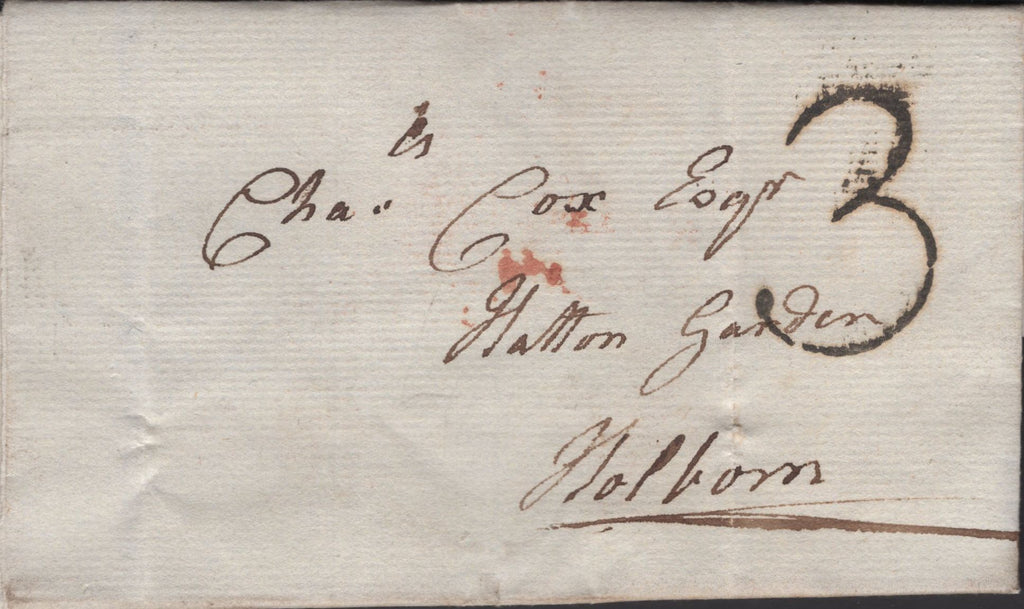 Cha.es Cox Esqr
3
Hatton Garden
Holborn